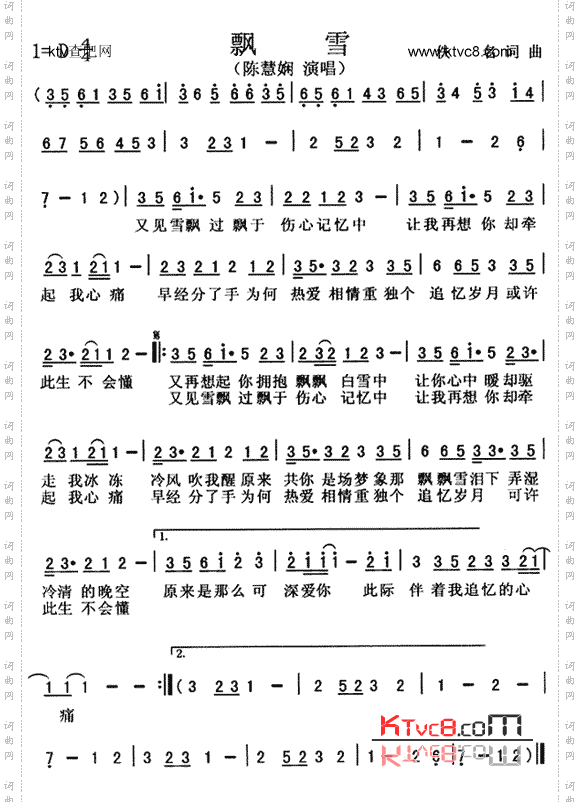 飘 雪
1=D 4/4 ktv查吧网 www.ktvc8.com 词 曲
（陈慧娴 演唱）
(3 5 6 1 3 5 6 i | 3 6 1 6 6 5 6 | 6 5 6 1 6 4 3 6 5 | 3 4 5 3 i 4 |
6 7 5 6 4 5 3 | 3 2 3 1 — | 2 5 2 3 2 | 1 — 2 6 |
7 — 1 2 ) | 3 5 6 i• 5 2 3 | 2 2 1 2 3 — | 3 5 6 i• 5 2 3 |
又见雪飘 过 飘于 伤心记忆中 让我再想 你 却牵
2 3 1 2 1 1 — | 2 3 2 1 2 1 2 | 3 5• 3 2 3 3 5 | 6 6 5 3 3 5 |
起 我心 痛 早经分了手 为何 热爱 相情重 独个 追 忆岁月 或许
2 3• 2 1 1 2 — 3 5 6 i• 5 2 3 | 2 3 2 1 2 3 — | 3 5 6 i• 5 2 3 |
此生 不 会懂 又再想起 你 拥抱 飘飘 白雪中 让你心中 暖 却驱
又见雪飘 过 飘于 伤心 记忆中 让我再想 你 却牵
2 3 1 2 1 1 — | 2 3 2 1 2 1 2 | 3 5• 3 2 3 3 5 | 6 6 5 3 3• 3 5 |
走 我 冰 冻 冷风 吹我醒 原来 共你 是 场 梦 象那 飘 飘雪泪下 弄湿
起 我心 痛 早经 分了手 为何 热爱 相情重 独个 追 忆岁月 可许
1.
2 3• 2 1 2 — | 3 5 6 i 2 3 | 2 i i i — 2 i | 3 5 2 3 3 2 1 |
冷清 的 晚空 原来是那么 可 深爱你 此际 伴 着我追忆的心
此生 不会懂
2.
1 1 1 — — ( 3 2 3 1 — | 2 5 2 3 2 | 1 — 2 6 |
痛
KTvc8.com
7 — 1 2 | 3 2 3 1 — | 2 5 2 3 2 | 1 — 2 6 | 7 — — — )
词曲网